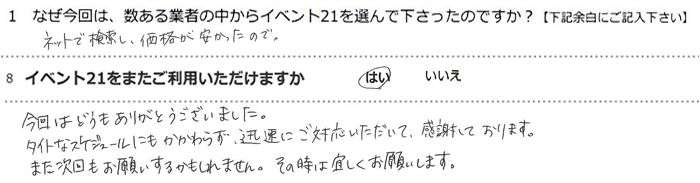 1 なぜ今回は、数ある業者の中からイベント21を選んで下さったのですか？【下記余白にご記入下さい】
ネットで検索し、価格が安かったので。
8 イベント21をまたご利用いただけますか はい いいえ
今回はどうもありがとうございました。
タイトなスケジュールにもかかわらず、迅速にご対応いただいて、感謝しております。
また次回もお願いするかもしれません。その時は宜しくお願いします。